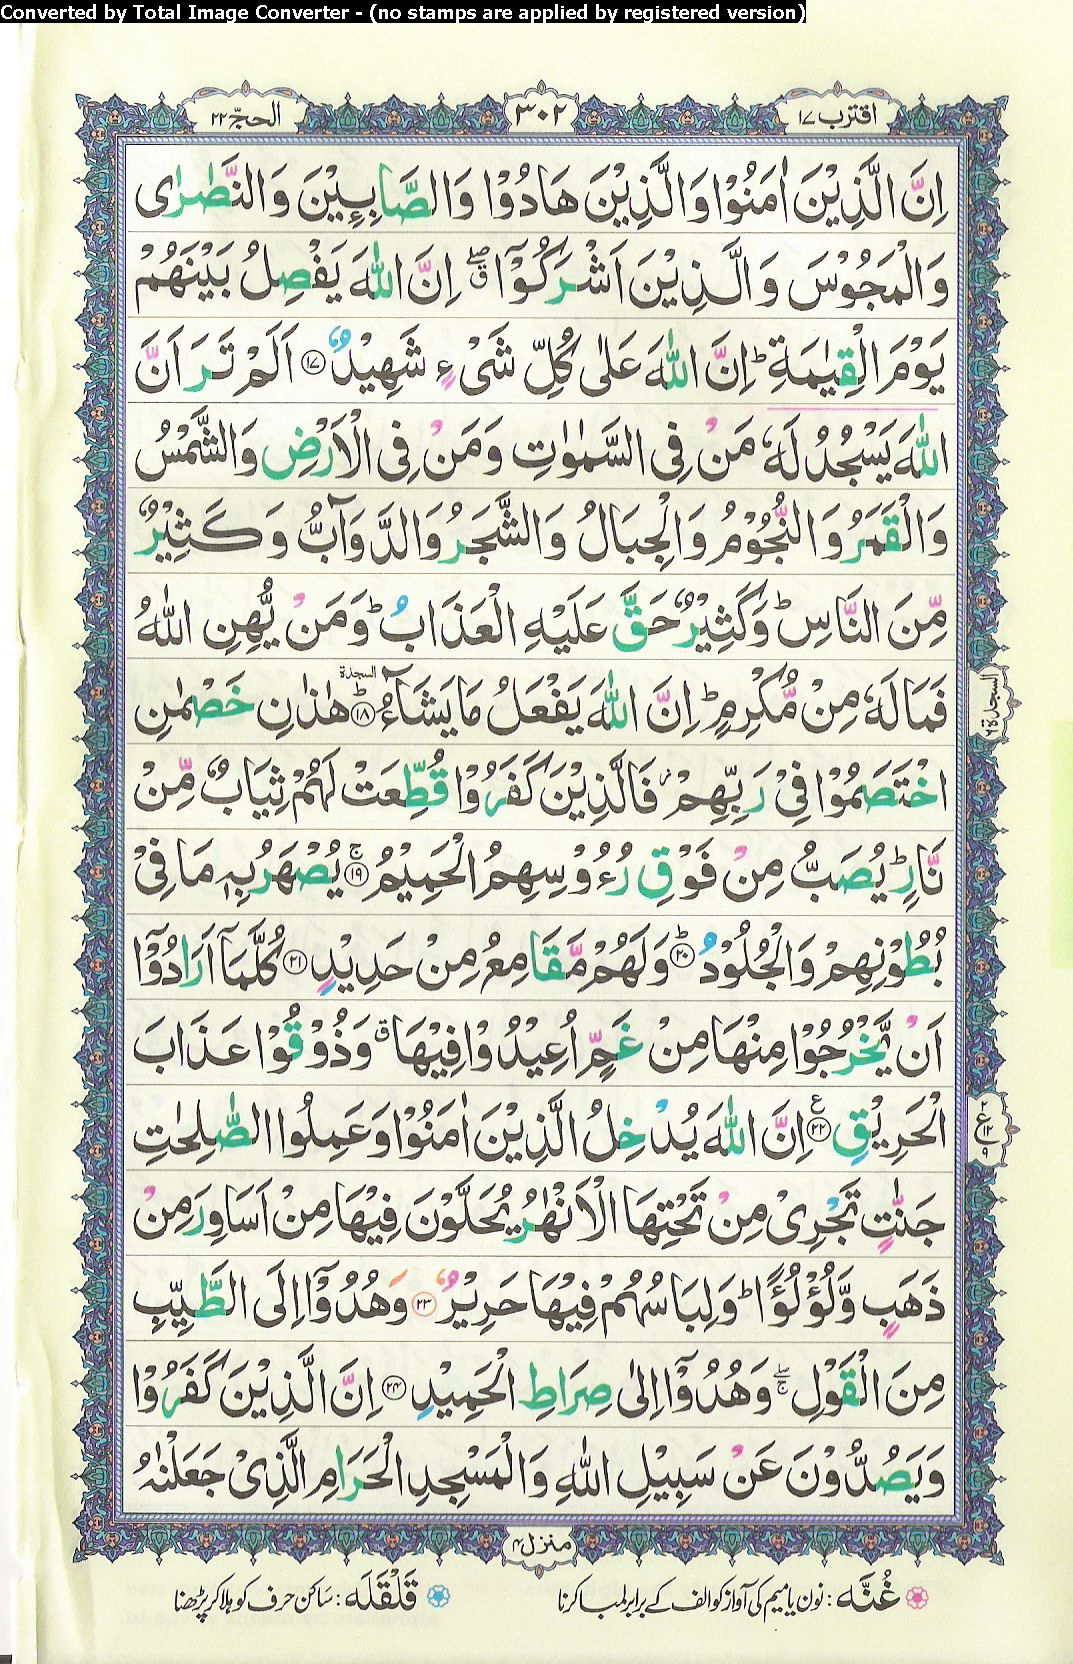 Converted by Total Image Converter - (no stamps are applied by registered version)
اقترب ١٧
٣٠٢
الحجّ ٢٢
اِنَّ الَّذِیْنَ اٰمَنُوْا وَالَّذِیْنَ هَادُوْا وَالصَّابِـِٕیْنَ وَالنَّصٰرٰی
وَالْمَجُوْسَ وَالَّذِیْنَ اَشْرَكُوْۤا ۖۗ اِنَّ اللّٰهَ یَفْصِلُ بَیْنَهُمْ
یَوْمَ الْقِیٰمَةِ ؕ اِنَّ اللّٰهَ عَلٰی كُلِّ شَیْءٍ شَهِیْدٌ ﴿١٧﴾ اَلَمْ تَرَ اَنَّ
اللّٰهَ یَسْجُدُ لَهٗ مَنْ فِی السَّمٰوٰتِ وَمَنْ فِی الْاَرْضِ وَالشَّمْسُ
وَالْقَمَرُ وَالنُّجُوْمُ وَالْجِبَالُ وَالشَّجَرُ وَالدَّوَآبُّ وَكَثِیْرٌ
مِّنَ النَّاسِ ؕ وَكَثِیْرٌ حَقَّ عَلَیْهِ الْعَذَابُ ؕ وَمَنْ یُّهِنِ اللّٰهُ
فَمَا لَهٗ مِنْ مُّكْرِمٍ ؕ اِنَّ اللّٰهَ یَفْعَلُ مَا یَشَآءُ ؕ ﴿١٨﴾ السجدة هٰذٰنِ خَصْمٰنِ
السجدة ٦
اخْتَصَمُوْا فِیْ رَبِّهِمْ ؗ فَالَّذِیْنَ كَفَرُوْا قُطِّعَتْ لَهُمْ ثِیَابٌ مِّنْ
نَّارٍ ؕ یُصَبُّ مِنْ فَوْقِ رُءُوْسِهِمُ الْحَمِیْمُ ۚ ﴿١٩﴾ یُصْهَرُ بِهٖ مَا فِیْ
بُطُوْنِهِمْ وَالْجُلُوْدُ ؕ ﴿٢٠﴾ وَلَهُمْ مَّقَامِعُ مِنْ حَدِیْدٍ ﴿٢١﴾ كُلَّمَاۤ اَرَادُوْۤا
اَنْ یَّخْرُجُوْا مِنْهَا مِنْ غَمٍّ اُعِیْدُوْا فِیْهَا ۗ وَذُوْقُوْا عَذَابَ
الْحَرِیْقِ ﴿٢٢﴾ ع اِنَّ اللّٰهَ یُدْخِلُ الَّذِیْنَ اٰمَنُوْا وَعَمِلُوا الصّٰلِحٰتِ
٢ ع ١٢ ٩
جَنّٰتٍ تَجْرِیْ مِنْ تَحْتِهَا الْاَنْهٰرُ یُحَلَّوْنَ فِیْهَا مِنْ اَسَاوِرَ مِنْ
ذَهَبٍ وَّلُؤْلُؤًا ؕ وَلِبَاسُهُمْ فِیْهَا حَرِیْرٌ ﴿٢٣﴾ وَهُدُوْۤا اِلَی الطَّیِّبِ
مِنَ الْقَوْلِ ۖۚ وَهُدُوْۤا اِلٰی صِرَاطِ الْحَمِیْدِ ﴿٢٤﴾ اِنَّ الَّذِیْنَ كَفَرُوْا
وَیَصُدُّوْنَ عَنْ سَبِیْلِ اللّٰهِ وَالْمَسْجِدِ الْحَرَامِ الَّذِیْ جَعَلْنٰهُ
منزل ٤
غُنَّه : نون یا میم کی آواز کو الف کے برابر لمبا کرنا
قَلْقَلَه : ساکن حرف کو ہلا کر پڑھنا